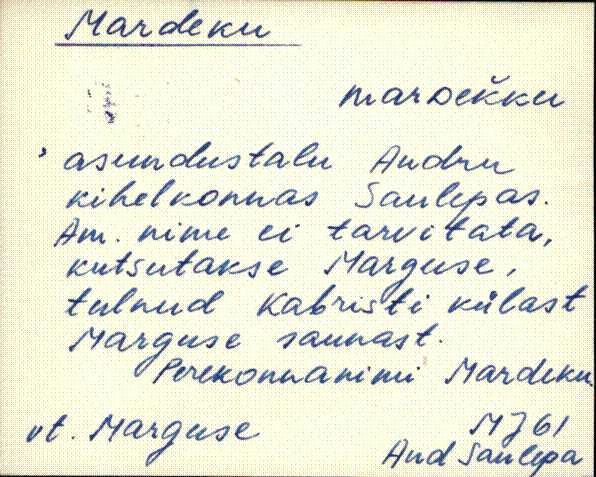 Mardeku
marDeǩku
, asundustalu Audru
kihelkonnas Saulepas.
Am. nime ei tarvitata,
kutsutakse Marguse,
tulnud Kabristi külast
Marguse saunast.
Perekonnanimi Mardeku.
vt. Marguse
MJ 61
Aud Saulepa